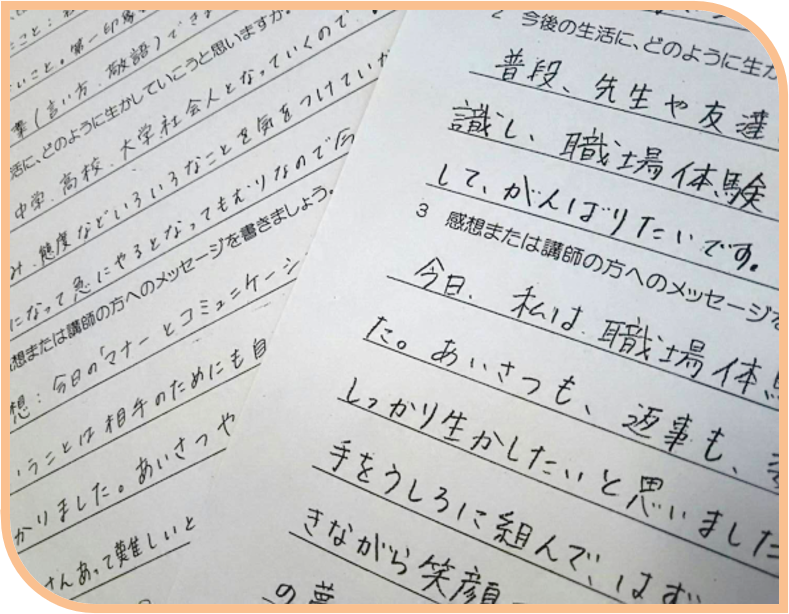 いこと。第一印象
葉(言い方、敬語)でき
活に、どのように生かしていこうと思いますか。
中学、高校、大学、社会人となっていくので
み、態度などいろいろなことを気をつけていか
になって急にやるとなってもむりなので今
感想または講師の方へのメッセージを書きましょう。
想:今日の「マナーとコミュニケーシ
いうことは相手のためにも自
かりました。あいさつや
さんあって難しいと
2 今後の生活に、どのように生か
普段、先生や友達
識し、職場体験
して、がんばりたいです。
3 感想または講師の方へのメッセージを
今日、私は、職場体験
た。あいさつも、返事も、
しっかり生かしたいと思いました
手をうしろに組んで、はず
きながら笑顔
の夢